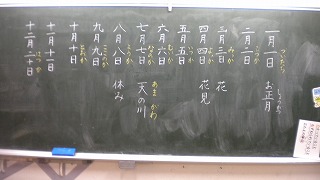 一月一日 ついたち お正月 しょうがつ
二月二日 ふつか
三月三日 みっか 花
四月四日 よっか 花見
五月五日 いつか
六月六日 むいか
七月七日 なのか 天の川 あま かわ
八月八日 ようか 休み
九月九日 ここのか
十月十日 とおか
十一月十日
十二月二十日 はつか